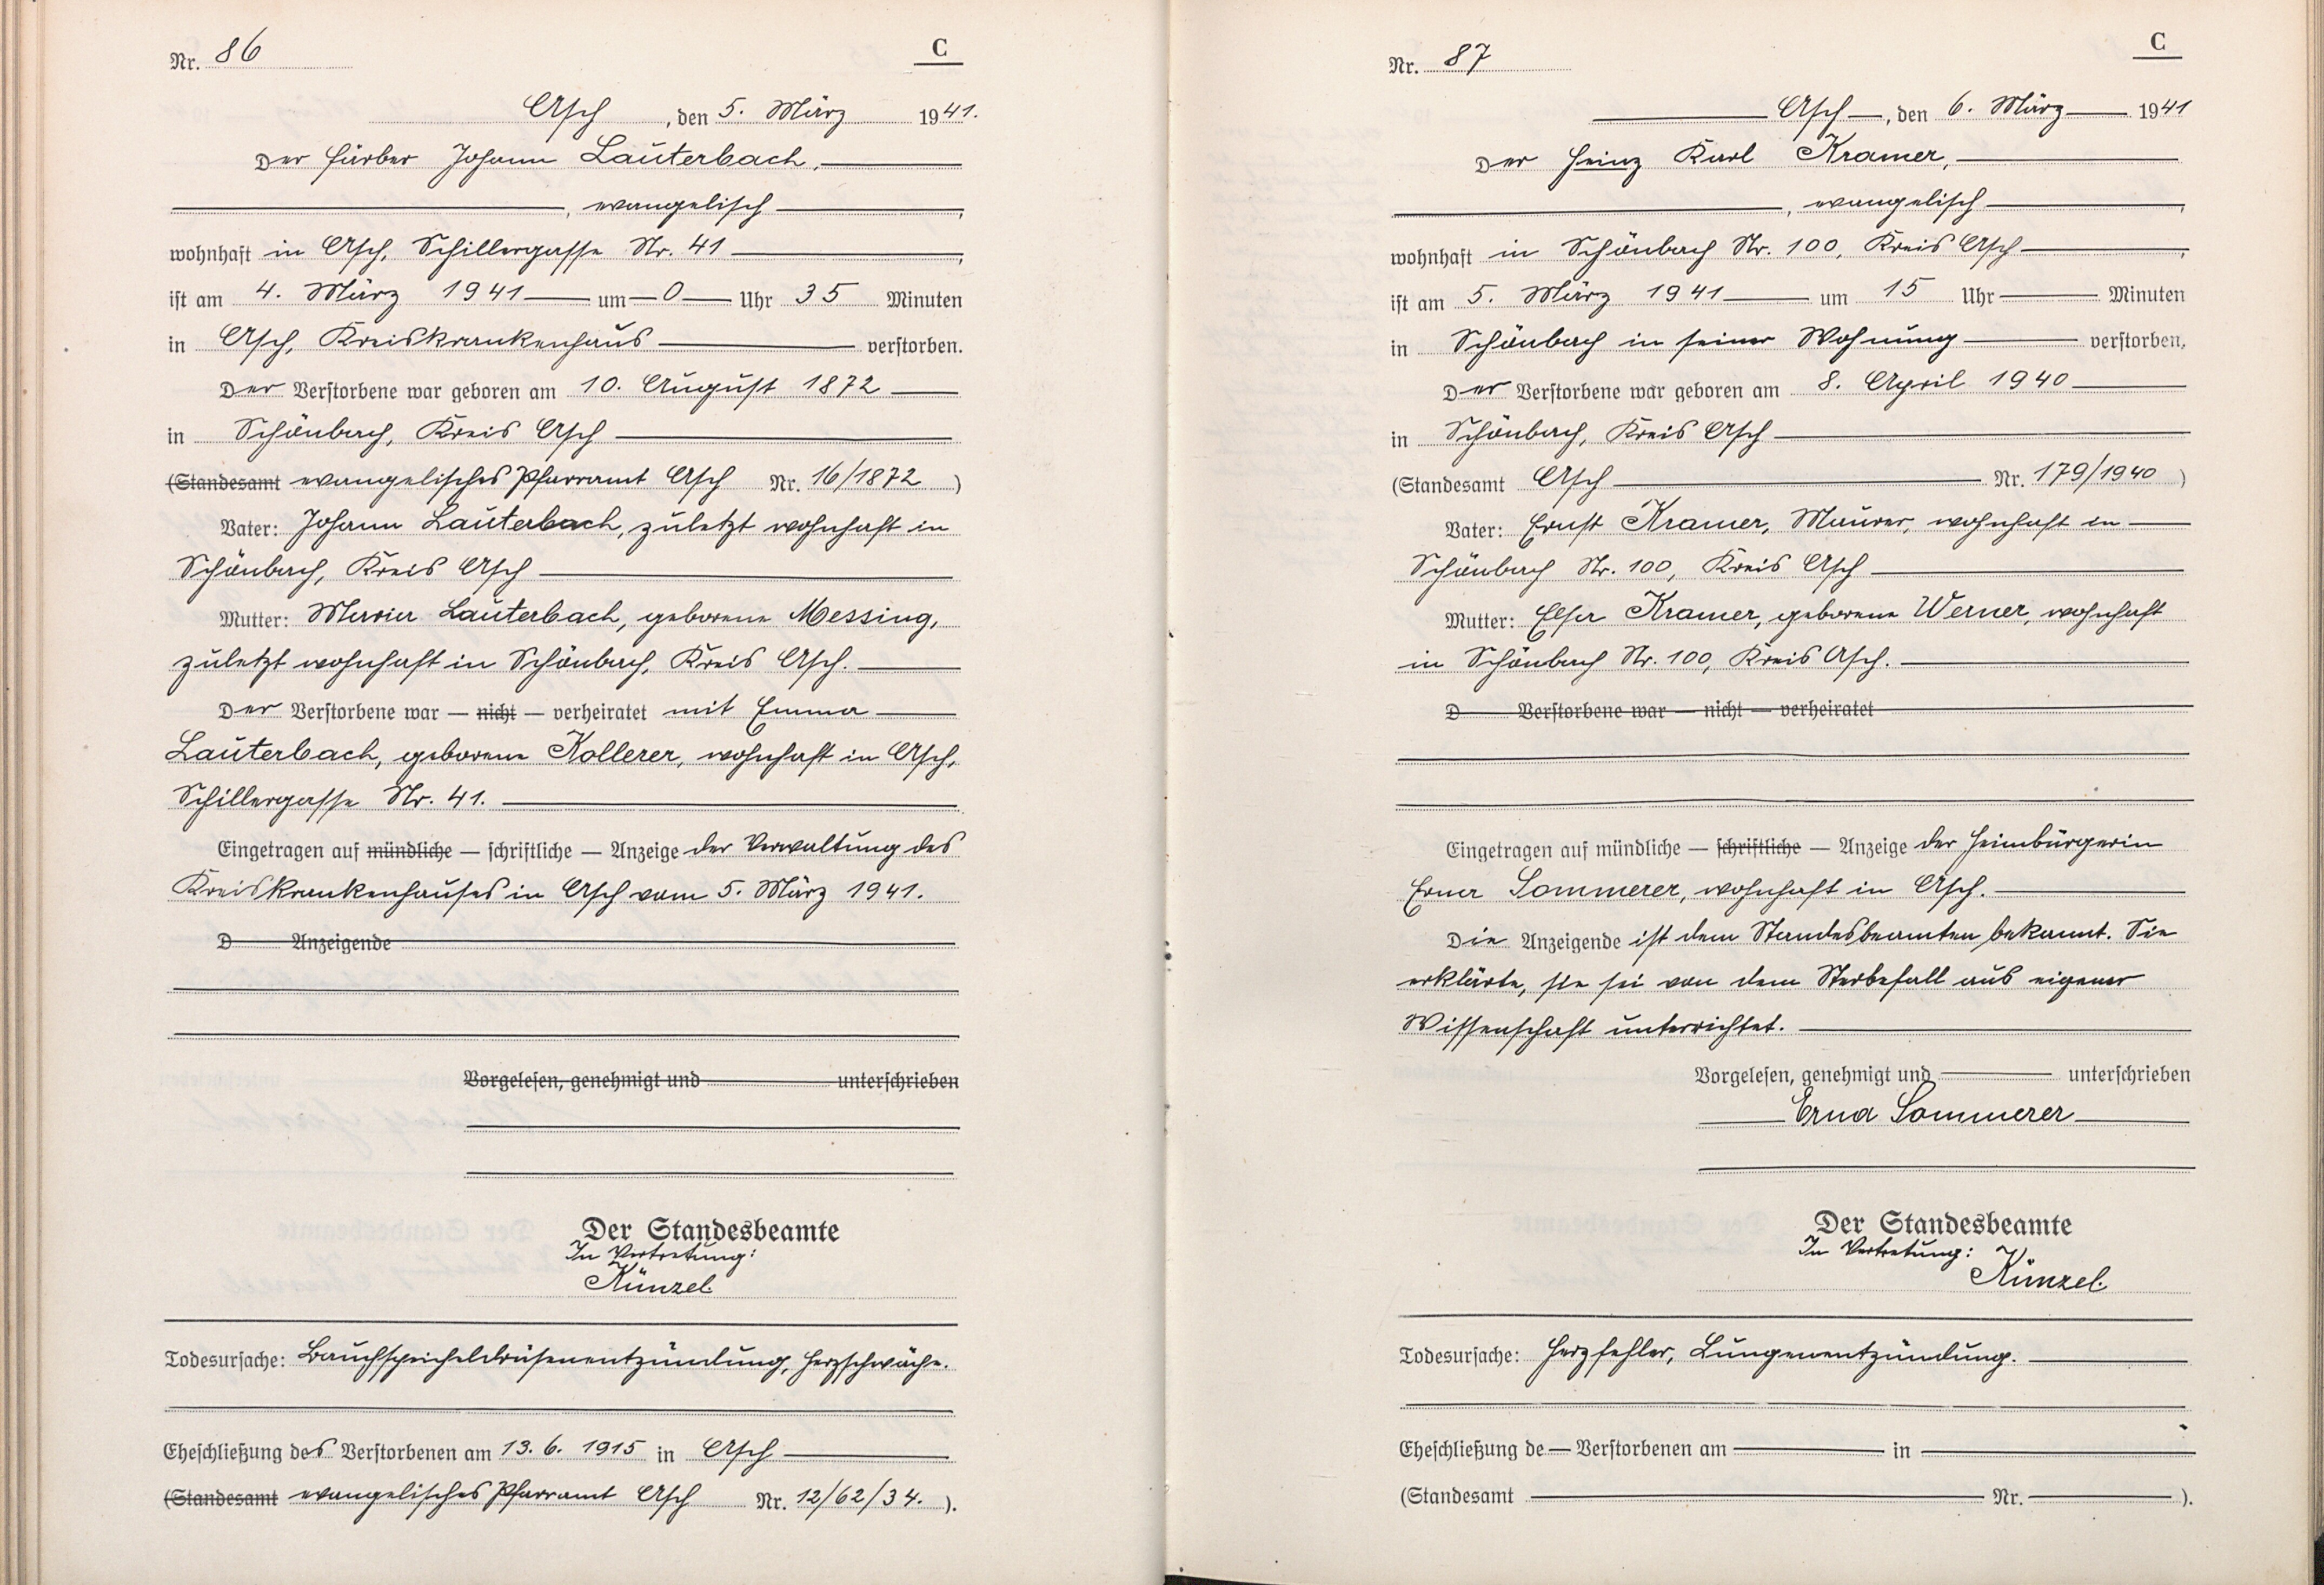 Nr. 86
C
Asch, den 5. März 1941.
Der Färber Johann Lauterbach,
, evangelisch ,
wohnhaft in Asch, Schillergasse Nr. 41 ,
ist am 4. März 1941 um 0 Uhr 35 Minuten
in Asch, Kreiskrankenhaus verstorben.
Der Verstorbene war geboren am 10. August 1872
in Schönbach, Kreis Asch
(Standesamt evangelisches Pfarramt Asch Nr. 16/1872 )
Vater: Johann Lauterbach, zuletzt wohnhaft in
Schönbach, Kreis Asch
Mutter: Maria Lauterbach, geborene Messing,
zuletzt wohnhaft in Schönbach, Kreis Asch.
Der Verstorbene war — nicht — verheiratet mit Emma
Lauterbach, geborene Kollerer, wohnhaft in Asch,
Schillergasse Nr. 41.
Eingetragen auf mündliche — schriftliche — Anzeige der Verwaltung des
Kreiskrankenhauses in Asch vom 5. März 1941.
D Anzeigende
Vorgelesen, genehmigt und unterschrieben
Der Standesbeamte
In Vertretung:
Künzel.
Todesursache: Bauchspeicheldrüsenentzündung, Herzschwäche.
Eheschließung des Verstorbenen am 13. 6. 1915 in Asch
(Standesamt evangelisches Pfarramt Asch Nr. 12/62/34. ).
Nr. 87
C
Asch, den 6. März 1941
Der Heinz Karl Kramer,
, evangelisch ,
wohnhaft in Schönbach Nr. 100, Kreis Asch ,
ist am 5. März 1941 um 15 Uhr Minuten
in Schönbach in seiner Wohnung verstorben.
Der Verstorbene war geboren am 8. April 1940
in Schönbach, Kreis Asch
(Standesamt Asch Nr. 179/1940 )
Vater: Ernst Kramer, Maurer, wohnhaft in
Schönbach Nr. 100, Kreis Asch
Mutter: Elsa Kramer, geborene Werner, wohnhaft
in Schönbach Nr. 100, Kreis Asch.
D Verstorbene war — nicht — verheiratet
Eingetragen auf mündliche — schriftliche — Anzeige der Heimbürgerin
Erna Sommerer, wohnhaft in Asch.
Die Anzeigende ist dem Standesbeamten bekannt. Sie
erklärte, sie sei von dem Sterbefall aus eigener
Wissenschaft unterrichtet.
Vorgelesen, genehmigt und unterschrieben
Erna Sommerer
Der Standesbeamte
In Vertretung:
Künzel.
Todesursache: Herzfehler, Lungenentzündung.
Eheschließung de Verstorbenen am in
(Standesamt Nr. ).